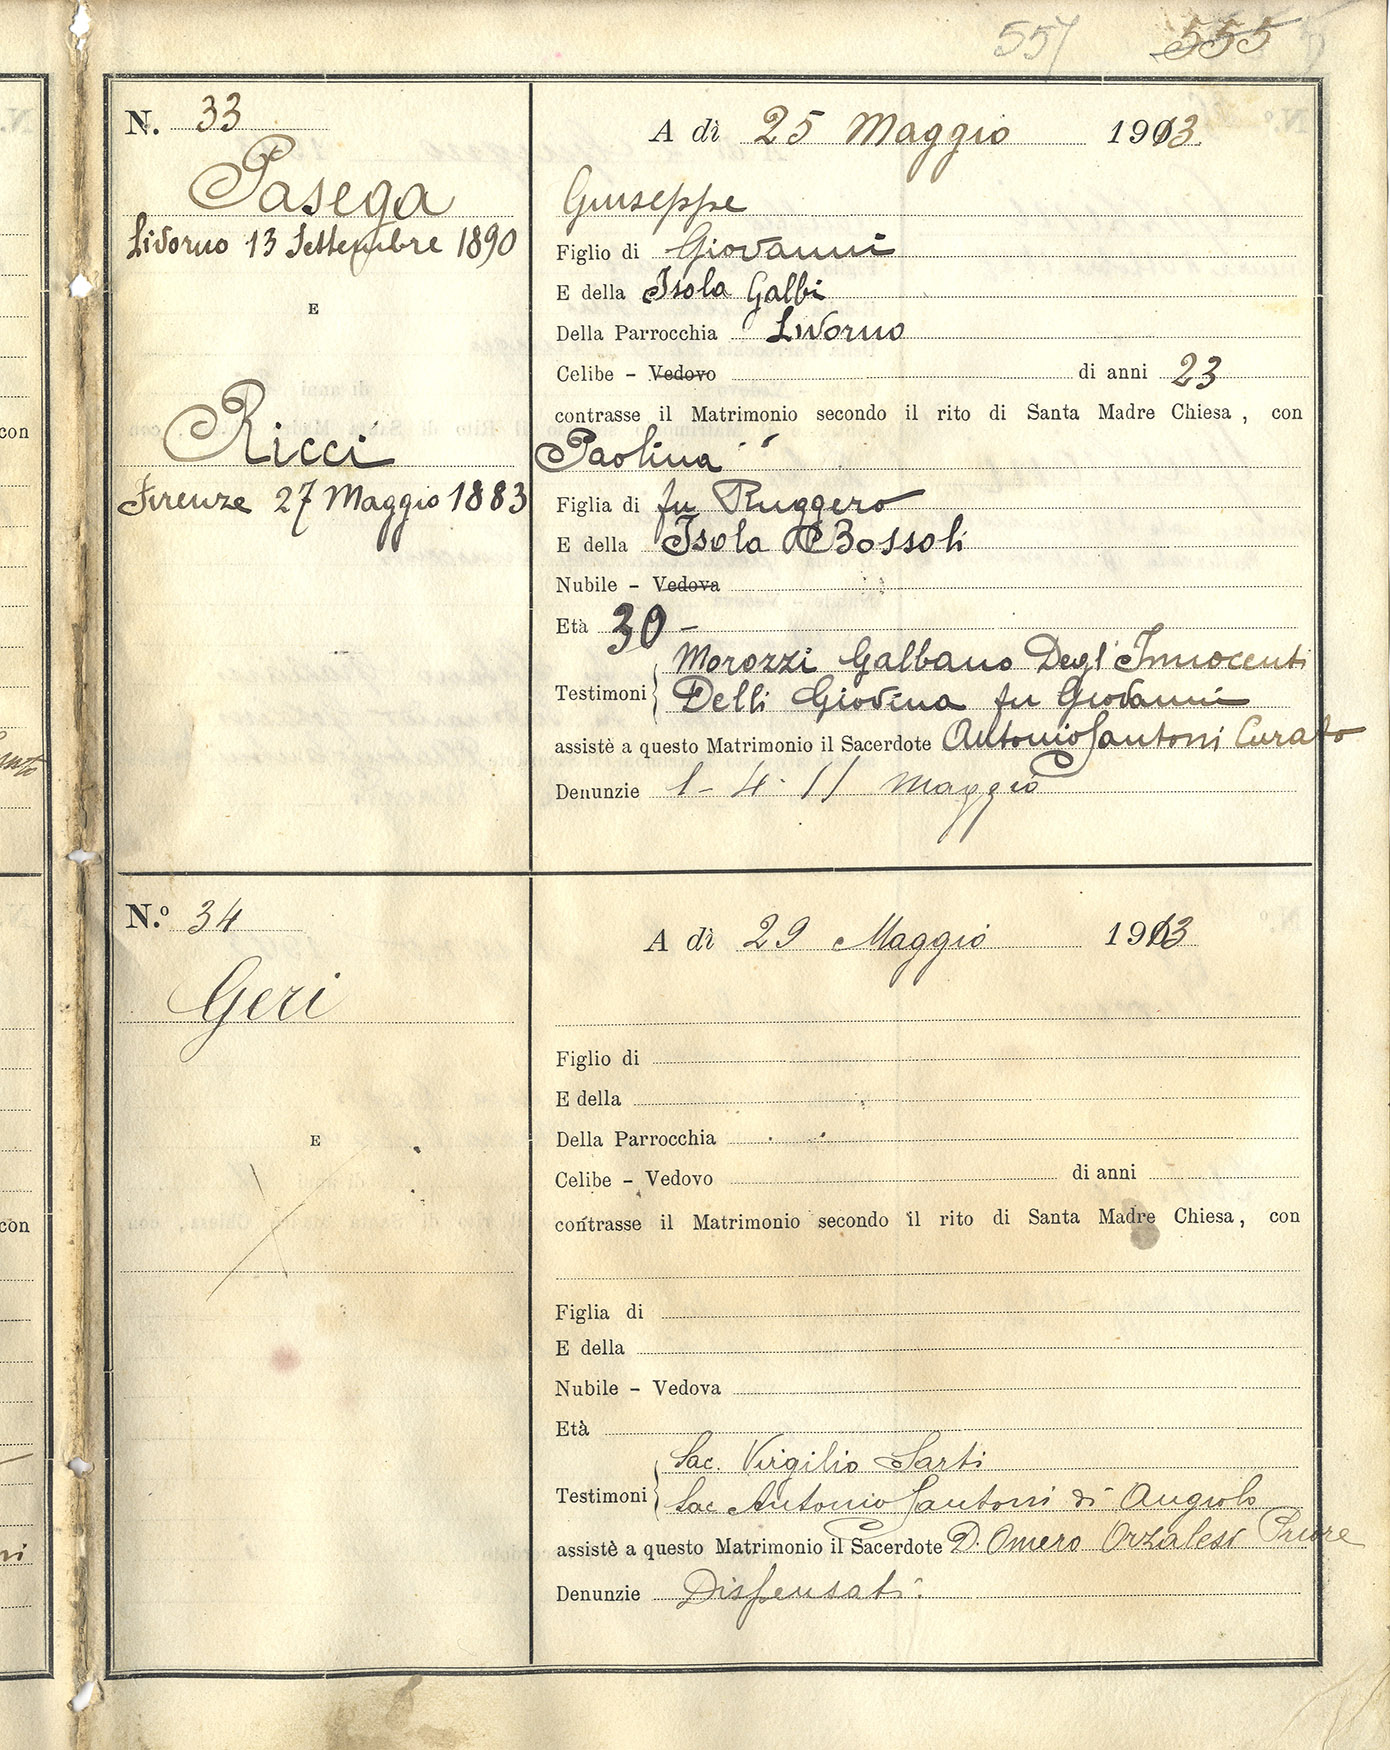 557 555
N. 33
Pasega
Livorno 13 Settembre 1890
E
Ricci
Firenze 27 Maggio 1883
A dì 25 Maggio 1913
Giuseppe
Figlio di Giovanni
E della Isola Galbi
Della Parrocchia Livorno
Celibe - Vedovo di anni 23
contrasse il Matrimonio secondo il rito di Santa Madre Chiesa, con
Paolina
Figlia di fu Ruggero
E della Isola Bossoli
Nubile - Vedova
Età 30 -
Morozzi Galbano Degl'Innocenti
Testimoni
Delli Giovina fu Giovanni
assistè a questo Matrimonio il Sacerdote Antonio Santoni Curato
Denunzie 1 - 4 - 11 Maggio
N.º 34
Geri
E
A dì 29 Maggio 1913
Figlio di
E della
Della Parrocchia
Celibe - Vedovo di anni
contrasse il Matrimonio secondo il rito di Santa Madre Chiesa, con
Figlia di
E della
Nubile - Vedova
Età
Sac. Virgilio Sarti
Testimoni
Sac Antonio Santoni di Angiolo
assistè a questo Matrimonio il Sacerdote D. Omero Orzalesi Priore
Denunzie Dispensati.
con
con